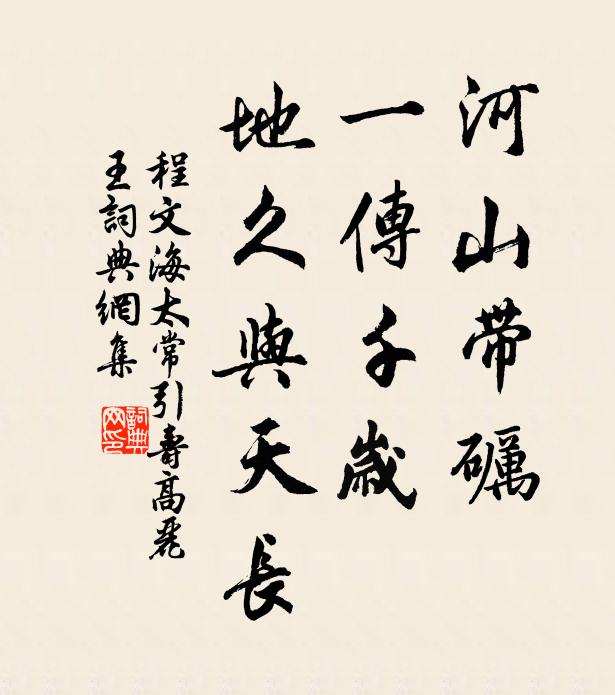 河山帶礪
一傳千歲
地久與天長
程文海太常引壽高麗
王詞典網集
詞典网印